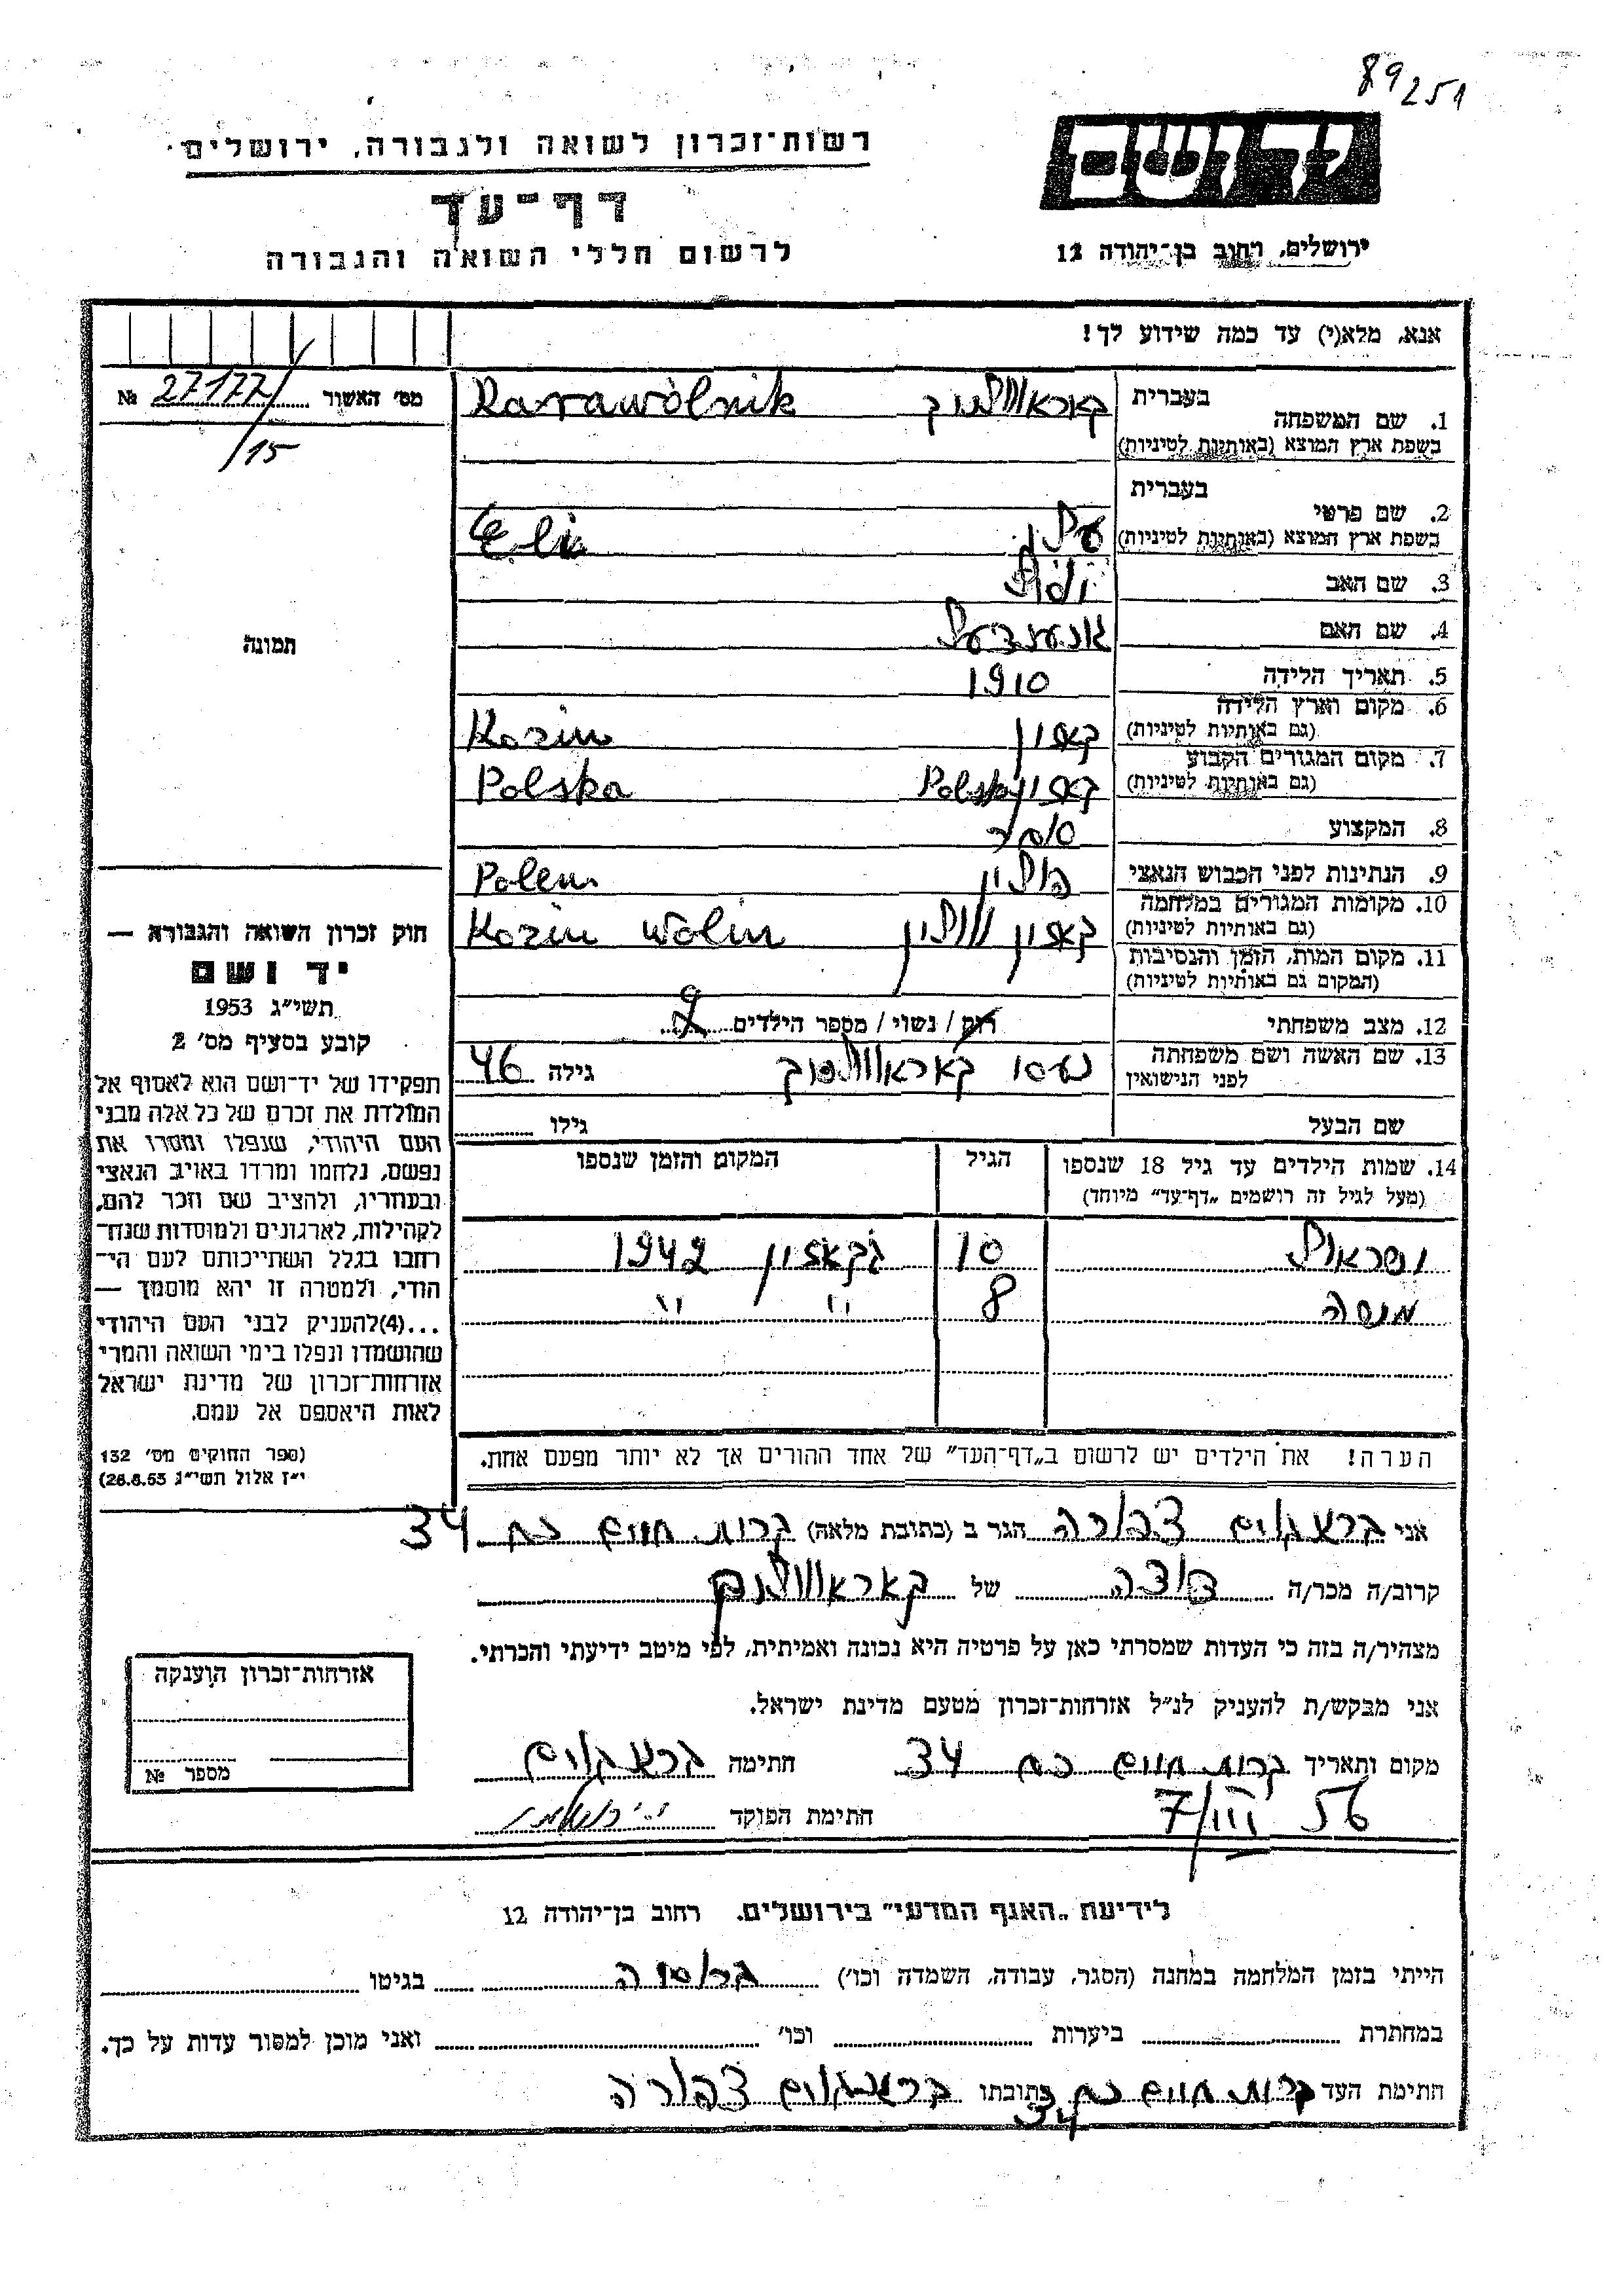 89251
רשות־זכרון לשואה ולגבורה, ירושלים
יד ושם
דף־עד
לרשום חללי השואה והגבורה
ירושלים, רחוב בן־יהודה 12
אנא, מלא(י) עד כמה שידוע לך!
מס׳ האשור 27177 №
/15
1. שם המשפחה
בעברית
בשפת ארץ המוצא (באותיות לטיניות)
קאראוולניק Karawolnik
2. שם פרטי
בעברית
בשפת ארץ המוצא (באותיות לטיניות)
Eli
3. שם האב
4. שם האם
5. תאריך הלידה 1910
6. מקום וארץ הלידה
(גם באותיות לטיניות)
קאזין Kozin
7. מקום המגורים הקבוע
(גם באותיות לטיניות)
קאזין Polska Polska
8. המקצוע סוחר
9. הנתינות לפני הכבוש הנאצי פולין Polen
10. מקומות המגורים במלחמה
(גם באותיות לטיניות)
קאזין וולין Kozin Wolin
11. מקום המות, הזמן והנסיבות
(המקום גם באותיות לטיניות)
12. מצב משפחתי רוק / נשוי / מספר הילדים 2
13. שם האשה ושם משפחתה
לפני הנישואין
קאראוולניק גילה 46
שם הבעל גילו
14. שמות הילדים עד גיל 18 שנספו
(מעל לגיל זה רושמים „דף־עד״ מיוחד)
הגיל
המקום והזמן שנספו
ישראל 10 בקאזין 1942
מנסה 8 " "
הערה! את הילדים יש לרשום ב„דף־העד״ של אחד ההורים אך לא יותר מפעם אחת.
תמונה
חוק זכרון השואה והגבורה —
יד ושם
תשי״ג 1953
קובע בסעיף מס׳ 2
תפקידו של יד־ושם הוא לאסוף אל
המולדת את זכרם של כל אלה מבני
העם היהודי, שנפלו ומסרו את
נפשם, נלחמו ומרדו באויב הנאצי
ובעוזריו, ולהציב שם וזכר להם,
לקהילות, לארגונים ולמוסדות שנח־
רחבו בגלל השתייכותם לעם הי־
הודי, ולמטרה זו יהא מוסמך —
...(4)להעניק לבני העם היהודי
שהושמדו ונפלו בימי השואה והמרי
אזרחות־זכרון של מדינת ישראל
לאות היאספם אל עמם.
(ספר החוקים מס׳ 132
י״ז אלול תשי״ג 28.8.53)
אני צפורה הגר ב (כתובת מלאה) קרית חיים 34
קרוב/ה מכר/ה דודה של קאראוולניק
מצהיר/ה בזה כי העדות שמסרתי כאן על פרטיה היא נכונה ואמיתית, לפי מיטב ידיעתי והכרתי.
אני מבקש/ת להעניק לנ״ל אזרחות־זכרון מטעם מדינת ישראל.
מקום ותאריך קרית חיים 34 חתימה
7/III 56
חתימת הפוקד
אזרחות־זכרון הוענקה
מספר №
לידיעת „האגף המדעי״ בירושלים. רחוב בן־יהודה 12
הייתי בזמן המלחמה במחנה (הסגר, עבודה, השמדה וכו׳) ברוסיה בגיטו
במחתרת ביערות וכו׳ ואני מוכן למסור עדות על כך.
חתימת העד קרית חיים כתובתו צפורה
34